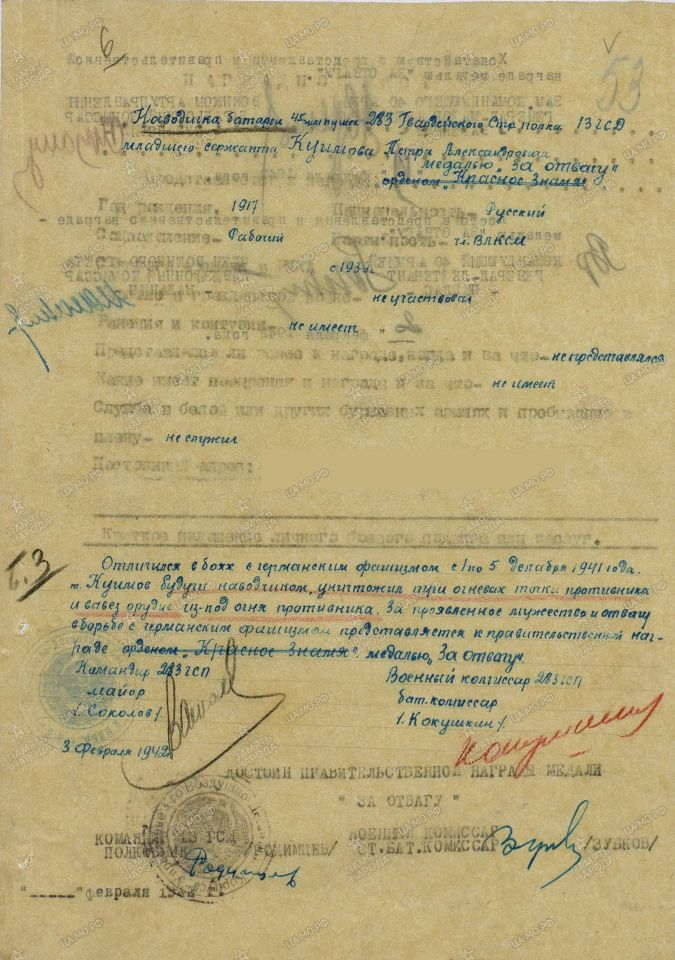 6
53
Наводчика батареи 45 мм пушек 283 Гвардейского Стр. полка 13 ГСД
младшего сержанта Куимова Петра Александровича
медалью „За отвагу"
орденом „Красное Знамя"
Год рождения. 1917
Национальность- Русский
Рабочий
чл. ВЛКСМ
с 1939 г.
не участвовал
Ранения и контузии- не имеет
Представлялся ли ранее к награде, когда и за что- не представлялся
Какие имеет поощрения и награды и за что- не имеет
Служба в белой или других буржуазных армиях и пребывание в
плену- не служил
Постоянный адрес:
Краткое изложение личного боевого подвига или заслуг.
Б.3
Отличился в боях с германским фашизмом с 1 по 5 декабря 1941 года.
т. Куимов будучи наводчиком, уничтожил три огневых точки противника
и вывез орудие из-под огня противника. За проявленное мужество и отвагу
в борьбе с германским фашизмом представляется к правительственной наг-
раде орденом „Красное Знамя" медалью „За отвагу"
Командир 283 ГСП
майор
/Соколов/
Военный комиссар 283 ГСП
бат. комиссар
/Кокушкин/
3 февраля 1942 г.
ДОСТОИН ПРАВИТЕЛЬСТВЕННОЙ НАГРАДЫ МЕДАЛИ
" ЗА ОТВАГУ "
КОМАНДИР 13 ГСД
ПОЛКОВНИК /РОДИМЦЕВ/
Родимцев
ВОЕННЫЙ КОМИССАР
СТ.БАТ.КОМИССАР /ЗУБКОВ/
"_____" февраля 1942 г.
ПАМЯТЬ НАРОДА
ЦАМО.РФ